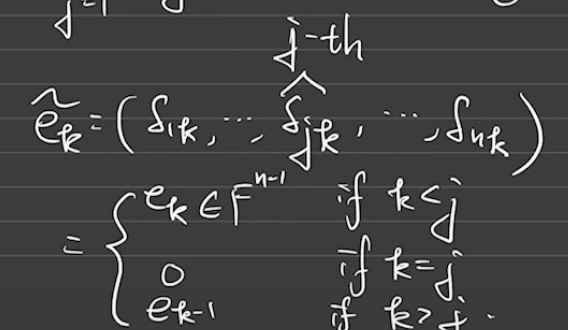 j-th
ẽ_k = (δ_{1k}, ..., δ̂_{jk}, ..., δ_{nk})
= { e_k ∈ F^{n-1} if k < j
0 if k = j
e_{k-1} if k > j.